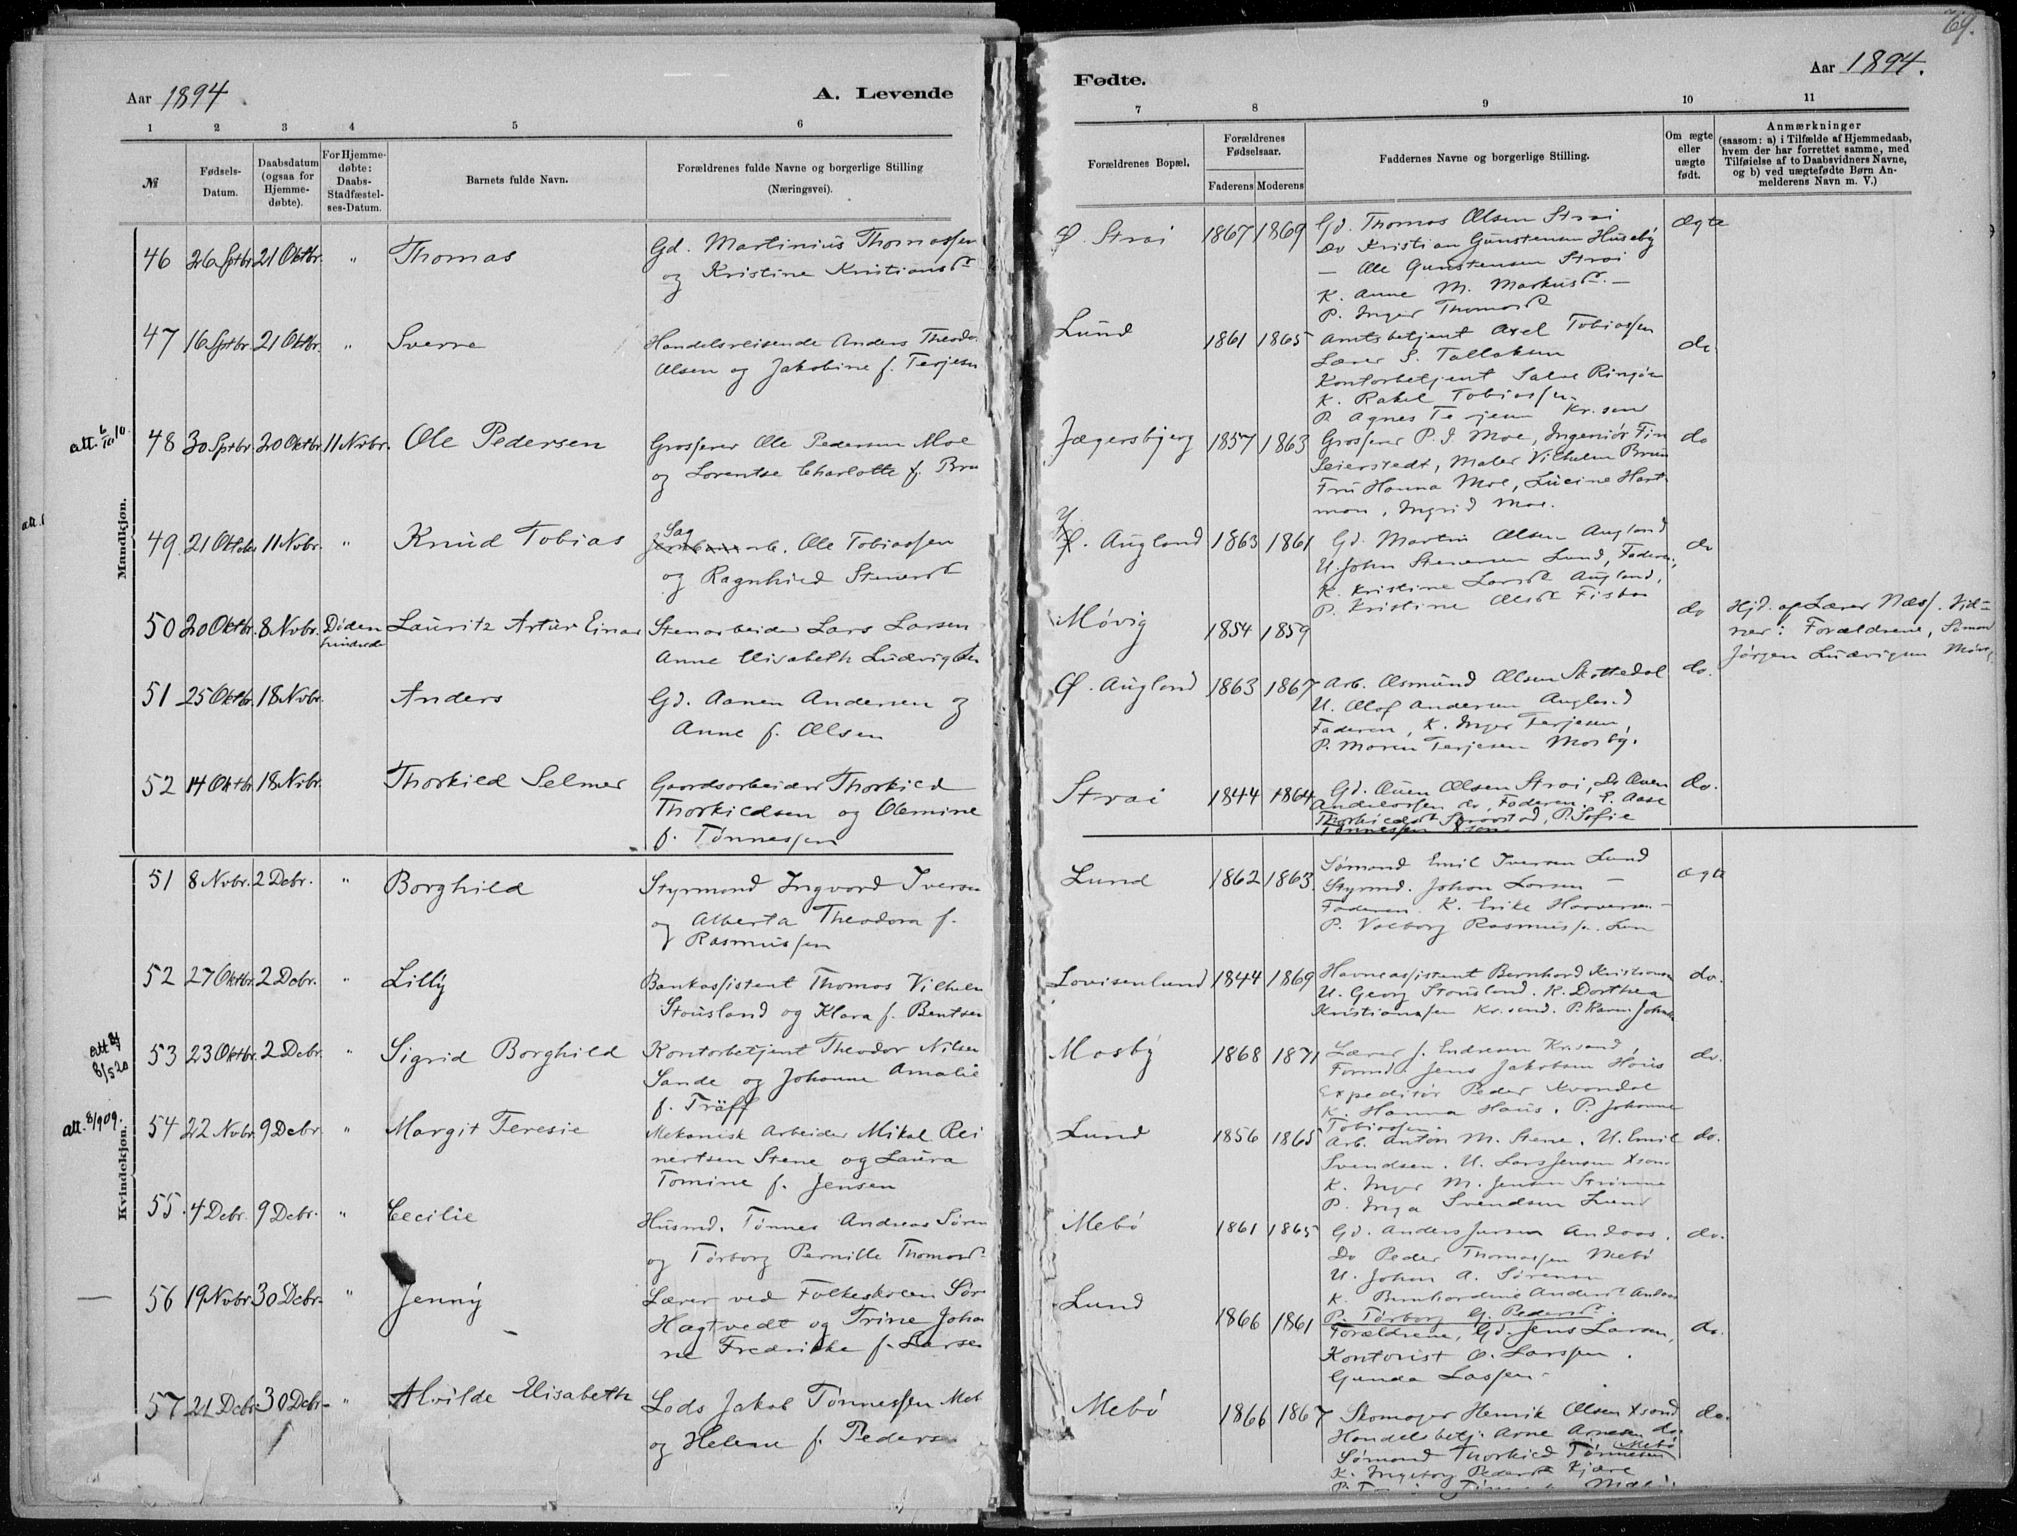 69.
Aar 1894
A. Levende
Fødte.
Aar 1894.
1 2 3 4 5 6
7 8 9 10 11
№
Fødsels-
Datum.
Daabsdatum
(ogsaa for
Hjemme-
døbte).
For Hjemme-
døbte:
Daabs-
Stadfæstel-
ses-Datum.
Barnets fulde Navn.
Forældrenes fulde Navne og borgerlige Stilling
(Næringsvei).
Forældrenes Bopæl.
Forældrenes
Fødselsaar.
Faderens Moderens
Faddernes Navne og borgerlige Stilling.
Om ægte
eller
uægte
født.
Anmærkninger
(saasom: a) i Tilfælde af Hjemmedaab,
hvem der har forrettet samme, med
Tilføielse af to Daabsvidners Navne,
og b) ved uægtefødte Børn An-
melderens Navn m. V.)
Mandkjøn.
46 26 Sptbr. 21 Oktbr. " Thomas
Gd. Martinius Thomassen
og Kristine Kristiansd
Ø. Strai 1867 1869
Gd. Thomas Olsen Strai
Do Kristian Gunstensen Husebÿ
— Ole Gunstensen Strai
K. Anne M. Markusd. —
P. Inger Thomasd
Ægte
47 16 Sptbr. 21 Oktbr. " Sverre
Handelsreisende Anders Theodor
Olsen og Jakobine f. Terjesen
Lund 1861 1865
Amtsbetjent Axel Tobiassen
Lærer S. Tallaksen
Kontorbetjent Salve Ringøen
K. Rakel Tobiassen
P. Agnes Terjesen Kr.sand
do.
att. 6/10 10.
48 30 Sptbr. 20 Oktbr. 11 Nvbr. Ole Pedersen
Grosserer Ole Pedersen Moe
og Lorentse Charlotte f. Bru
Jægersbjerg 1857 1863
Grosserer P. J. Moe, Ingeniør Fin
Seierstedt, Maler Vilhelm Bruun
Fru Hanna Moe, Lucine Hart-
man, Ingrid Moe.
do
49. 21 Oktobr 11 Nvbr. " Knud Tobias
Sag
Jernbanearb. Ole Tobiassen
og Ragnhild Stenersd
Y. Augland 1863 1861
Gd. Martin Olsen Augland
U. John Stenersen Lund, Faderen,
K. Kristine Larsd Augland,
P. Kristine Olsd Fiskaa
do
50 20 Oktbr. 8 Nvbr. Døden
hindrede
Lauritz Artur Einar
Stenarbeider Lars Larsen
Anne Elisabeth Ludvigsen
Møvig 1854 1859
do
Hjd. af Lærer Næss. Vid-
ner: Forældrene, Sømand
Jørgen Ludvigsen Møvig
51 25 Oktbr. 18 Nvbr. Anders
Gd. Aanen Andersen og
Anne f. Olsen
Ø. Augland 1863 1867
Arb. Osmund Olsen Skottedal
U. Olof Andersen Augland
Faderen, K. Inger Terjesen,
P. Maren Terjesen Mosbÿ.
do.
52 14 Oktbr. 18 Nvbr. Thorkild Selmer
Gaardsarbeider Thorkild
Thorkildsen og Olemine
f. Tønnessen
Strai 1844 1864
Gd. Ouen Olsen Strai, Do Ouen
Anderssen do, Faderen. E. Aase
Thorkildsd, P. Sofie
Tønnessen Xsand
do.
Kvindekjøn.
51 8 Nvbr. 2 Debr. " Borghild
Styrmand Ingvard Iversen
og Alberta Theodora f.
Rasmussen
Lund 1862 1863.
Sømand Emil Iversen Lund
Styrmd. Johan Larsen —
Faderen. K. Erike Haaversen —
P. Valborg Rasmussen. Lun
Ægte
52 27 Oktbr. 2 Debr. " Lillÿ
Bankassistent Thomas Vilhelm
Stousland og Klara f. Bentsen
Lovisenlund 1844 1869
Havneassistent Bernhard Kristiansen
U. Georg Stousland. K. Dorthea
Kristiansen Kr.sand. P. Karen Johnsen
do.
att
8/5 20
53 23 Oktbr. 2 Debr. " Sigrid Borghild
Kontorbetjent Theodor Nilsen
Sande og Johanne Amalie
f. Träff
Mosbÿ 1868 1871
Lærer J. Endresen Kr.sand,
Formd. Jens Jakobsen Haus
Expeditør Peder Kvandal
K. Hanna Haus. P. Johanne
Tobiassen.
do.
att. 8/9 09.
54 22 Nvbr. 9 Debr. " Margit Teresie
Mekanisk Arbeider Mikal Rei
nertsen Stene og Laura
Tomine f. Jensen
Lund 1856 1865
Arb. Anton M. Stene. U. Emil
Svendsen. U. Lars Jensen Xsand
K. Inger M. Jensen Strømme
P. Inga Svendsen Lund
do.
55. 4 Debr. 9 Debr. " Cecilie
Husmd. Tønnes Andreas Søren
og Tørborg Pernille Thomasd.
Mebø 1861 1865
Gd. Anders Jensen Andaas.
Do Peder Thomassen Mebø
U. Johan A. Sørensen
K. Bernhardine Andersd Andaas
P. Tørborg G. Pedersd.
do.
56 19 Nvbr. 30 Debr. " Jennÿ
Lærer ved Folkeskolen Sør
Hagtvedt og Trine Joha
ne Fredrikke f. Larsen
Lund 1866 1861
Forældrene, Gd. Jens Larsen,
Kontorist O. Larssen.
Gunda Lassen.
do.
57 21 Debr. 30 Debr. " Alvilde Elisabeth
Lods Jakob Tønnessen Meb
og Helene f. Peders
Mebø 1866 1867
Skomager Henrik Olsen Xsand
Handelsbetj. Arne Arnesen do.
Sømand Thorkild Tønnesen Mebø
K. Ingeborg Pedersd Kjære
do.